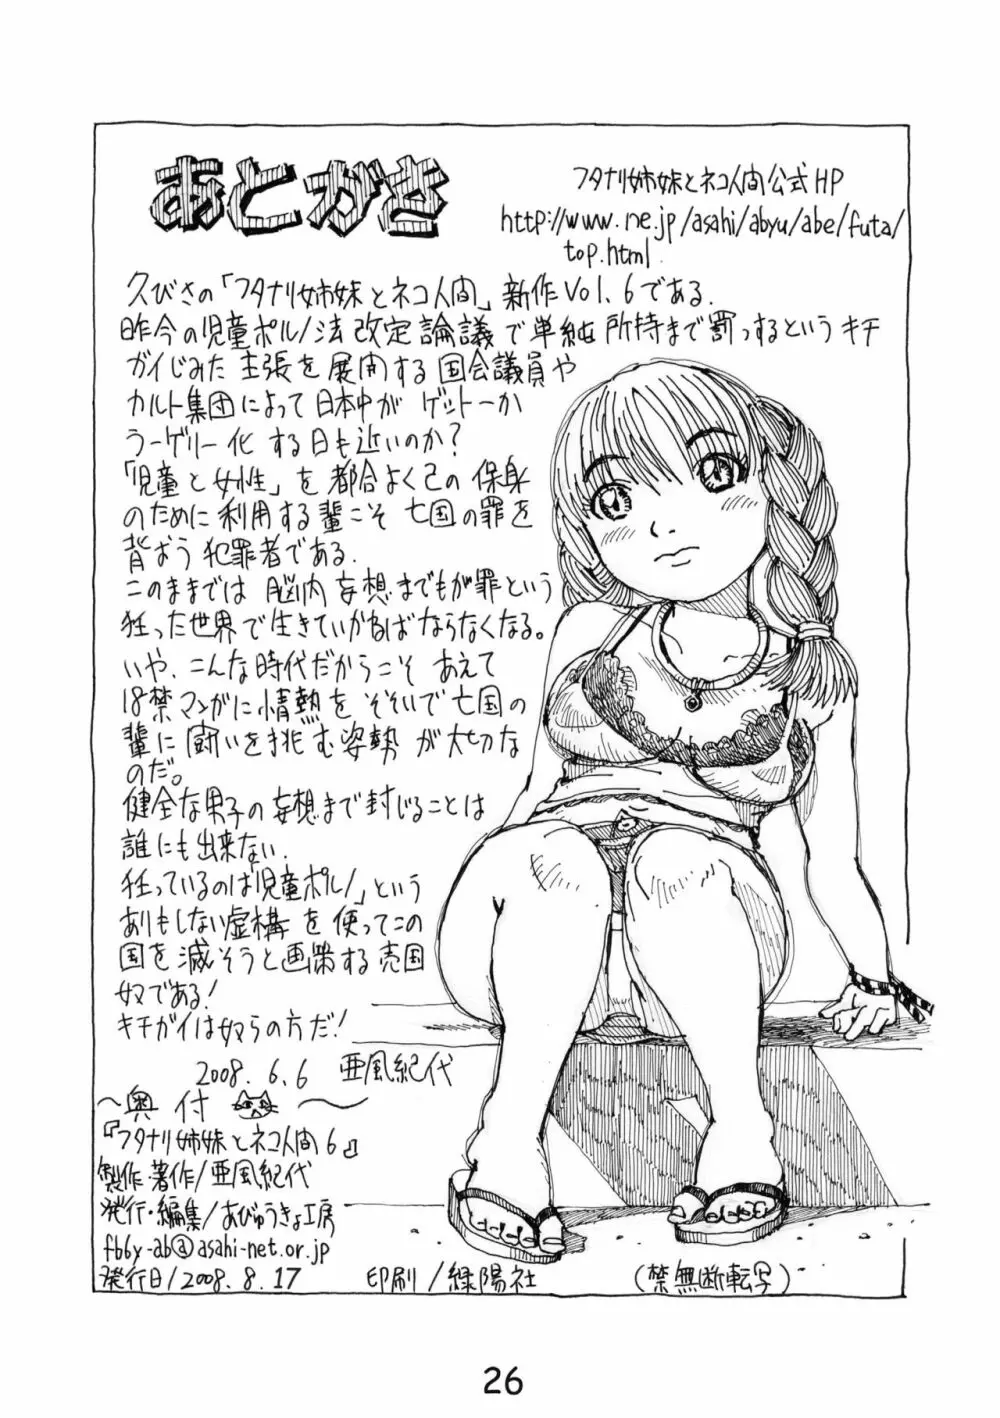 あとがき
フタナリ姉妹とネコ人間公式HP
http://www.ne.jp/asahi/abyu/abe/futa/
top.html
久びさの「フタナリ姉妹とネコ人間」新作Vol.6である.
昨今の児童ポルノ法改定論議で単純所持まで罰っするというキチ
ガイじみた主張を展開する国会議員や
カルト集団によって日本中がゲットーか
ラーゲリー化する日も近いのか?
「児童と女性」を都合よく己の保身
のために利用する輩こそ亡国の罪を
背おう犯罪者である.
このままでは脳内妄想までもが罪という
狂った世界で生きていかねばならなくなる。
いや、こんな時代だからこそあえて
18禁マンガに情熱をそそいで亡国の
輩に闘いを挑む姿勢が大切な
のだ。
健全な男子の妄想まで封じることは
誰にも出来ない.
狂っているのは「児童ポルノ」という
ありもしない虚構を使ってこの
国を滅そうと画策する売国
奴である!
キチガイは奴らの方だ!
2008.6.6 亜風紀代
〜奥付〜
『フタナリ姉妹とネコ人間6』
製作・著作/亜風紀代
発行・編集/あびゅうきょ工房
f66y-ab@asahi-net.or.jp
発行日/2008.8.17 印刷/緑陽社 (禁無断転写)
26